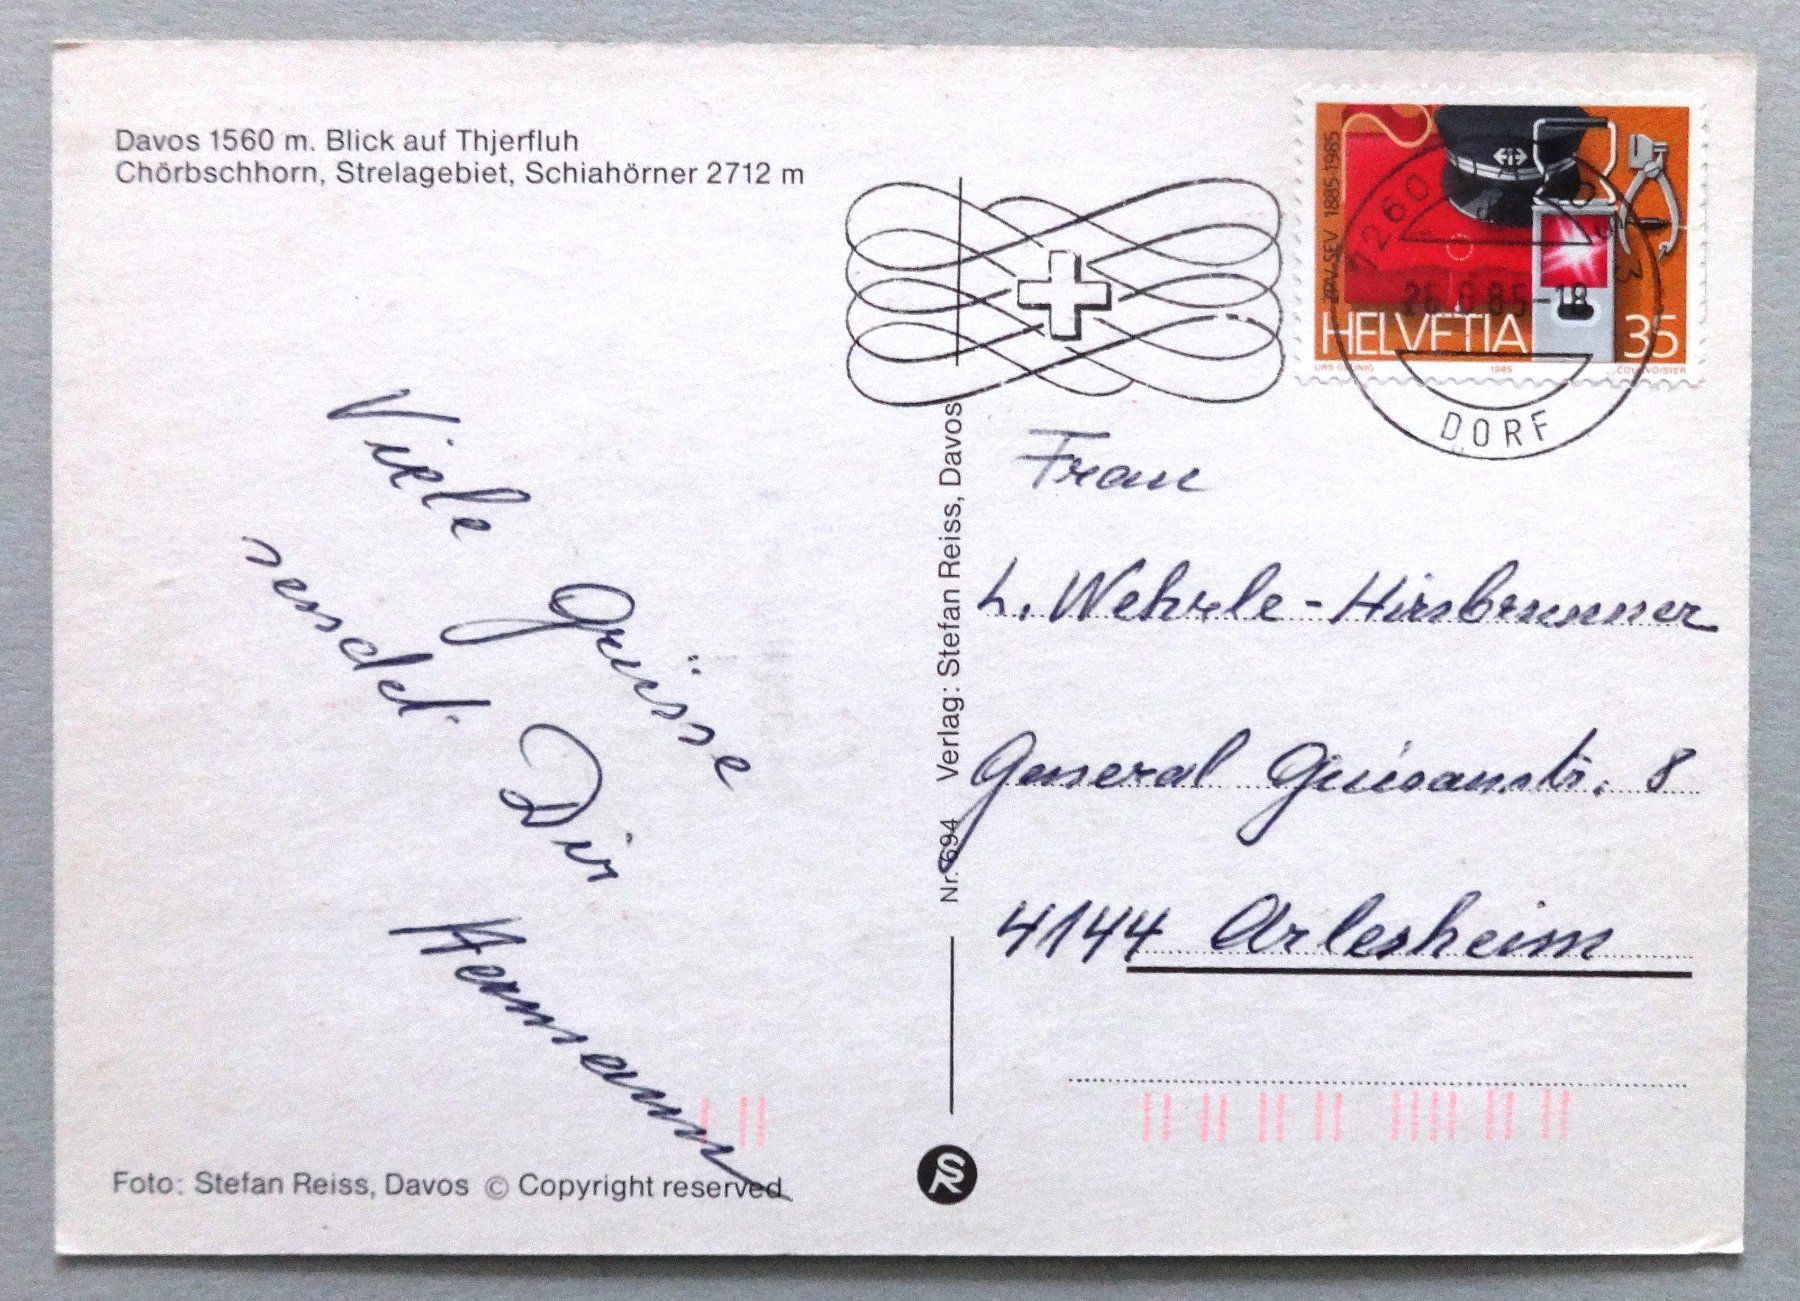 Davos 1560 m. Blick auf Thjerfluh
Chörbschhorn, Strelagebiet, Schiahörner 2712 m
Viele Grüsse
sendet Dir
Hermann
Foto: Stefan Reiss, Davos © Copyright reserved
Nr. 694 Verlag: Stefan Reiss, Davos
SR
ZPV-SEV 1885-1985
HELVETIA 35
URS GRÜNIG 1985 COURVOISIER
7260
26.6.85-18
DORF
Frau
L. Wehrle-Hirsbrunner
General Guisanstr. 8
4144 Arlesheim